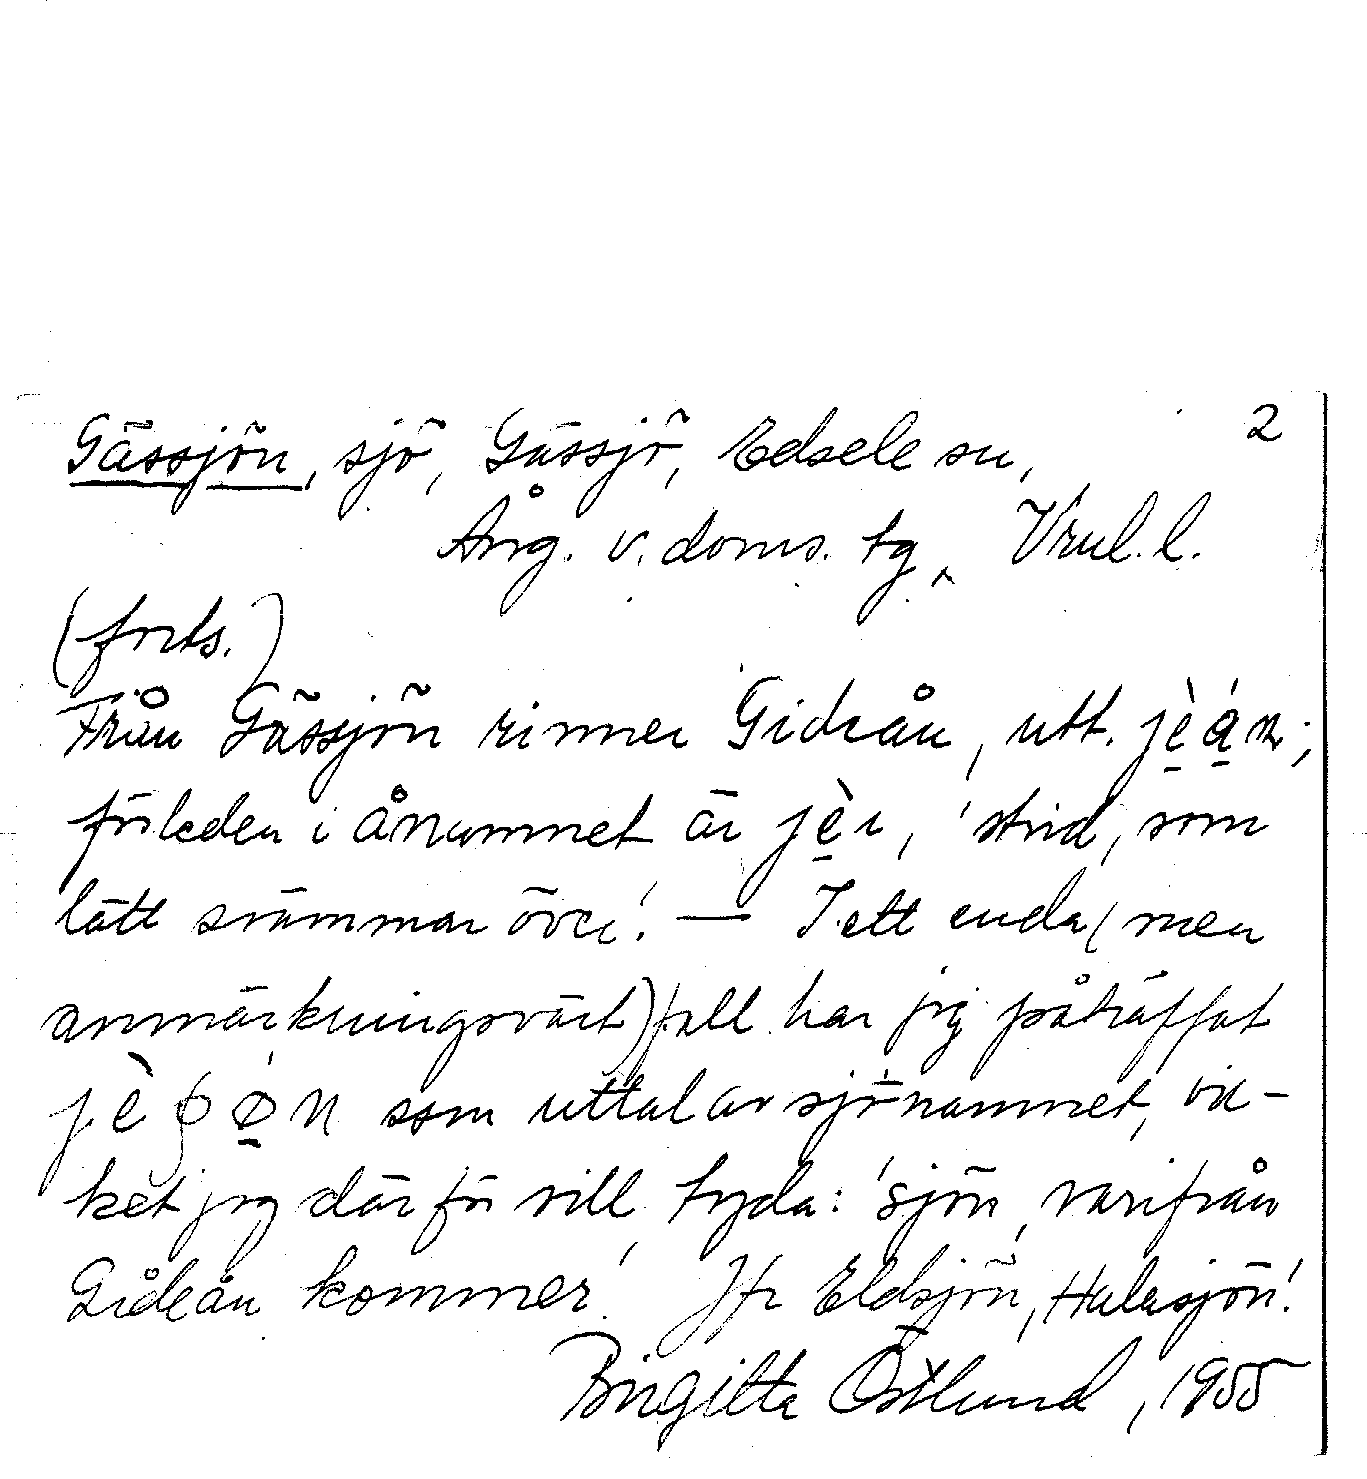 Gässjön, sjö, Gässjö, Edsele sn, 2
Ång. v. doms. tg, Vnl. l.
(forts.)
Från Gässjön rinner Gideån, utt. jè̱á̱n;
förleden i ånamnet är jè̱r, 'strid, som
lätt svämmar över'. — I ett enda (men
anmärkningsvärt) fall har jag påträffat
jèʂǿ̱n som uttal av sjönamnet, vil-
ket jag därför vill tyda: 'sjön, varifrån
Gideån kommer'. Jfr Eldsjön, Hulasjön!
Birgitta Östlund, 1955